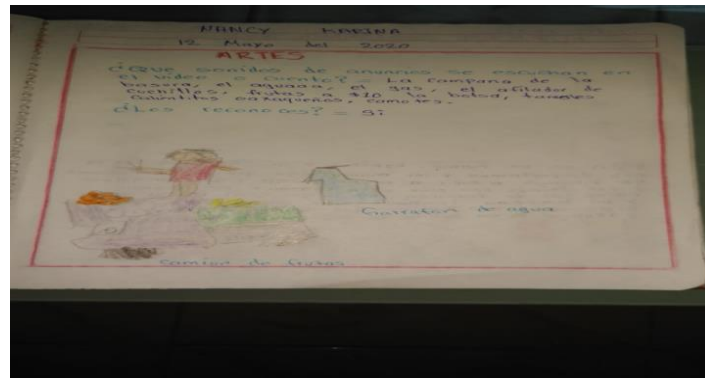 NANCY KARINA
12 Mayo del 2020
ARTES
¿Que sonidos de anuncios se escuchan en
el video o cuento? = La campana de la
basura, el aguaaa, el gas, el afilador de
cuchillos, frutas a $20 la bolsa, tamales
calientitos oaxaqueños, camotes.
¿Los reconoces? = Si
Garrafon de agua
Camion de frutas